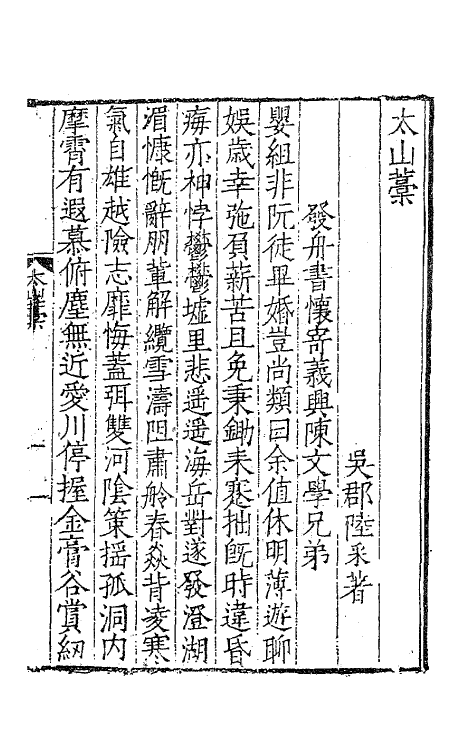 太山藁
吳郡陸采著
發舟書懷寄義興陳文學兄弟
嬰組非阮徒畢婚豈尚類曰余值休明薄遊聊
娛歲幸弛負薪苦且免秉鋤耒蹇拙旣時違昏
痗亦神悖鬱鬱墟里悲遥遥海岳對遂發澄湖
湄慷慨辭朋輩解纜雪濤阻肅舲春焱背凌寒
氣自雄越險志靡悔蓋弭雙河陰策摇孤洞内
摩霄有遐慕俯塵無近愛川停握金膏谷賞紉
太山藁
一